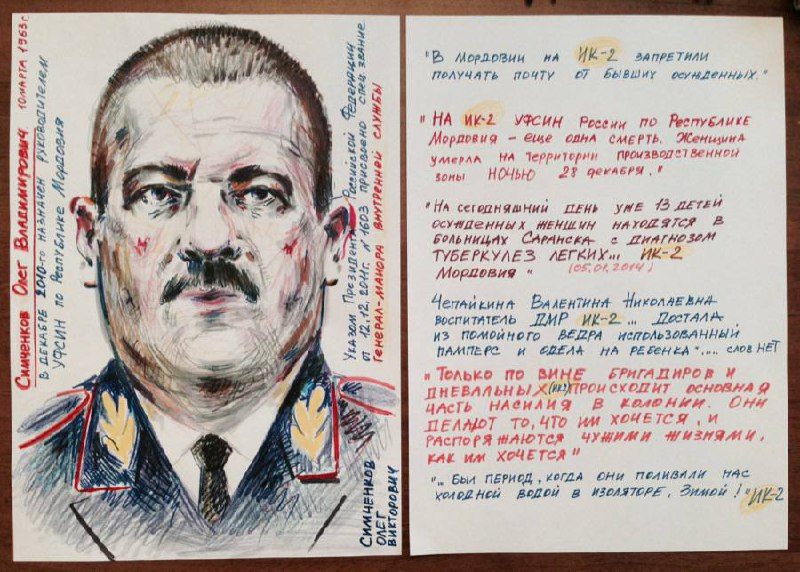 Симченков Олег Владимирович 10 марта 1963г.
в декабре 2010-го назначен руководителем
УФСИН по Республике Мордовия
Указом Президента Российской Федерации
от 12.12.2011г. №1603 присвоено спец. звание
Генерал-майора внутренней службы
Симченков
Олег
Викторович
"В Мордовии на ИК-2 запретили
получать почту от бывших осужденных."
"На ИК-2 УФСИН России по Республике
Мордовия – еще одна смерть. Женщина
умерла на территории производственной
зоны ночью 28 декабря."
"На сегодняшний день уже 13 детей
осужденных женщин находятся в
больницах Саранска с диагнозом
туберкулез легких... ИК-2
Мордовия" (05.01.2014)
Чепайкина Валентина Николаевна
воспитатель ДМР ИК-2 ... Достала
из помойного ведра использованный
памперс и одела на ребенка".... слов нет
"Только по вине бригадиров и
дневальных (ИК2) происходит основная
часть насилия в колонии. Они
делают то, что им хочется, и
распоряжаются чужими жизнями,
как им хочется"
"... был период, когда они поливали нас
холодной водой в изоляторе, зимой!" ИК-2